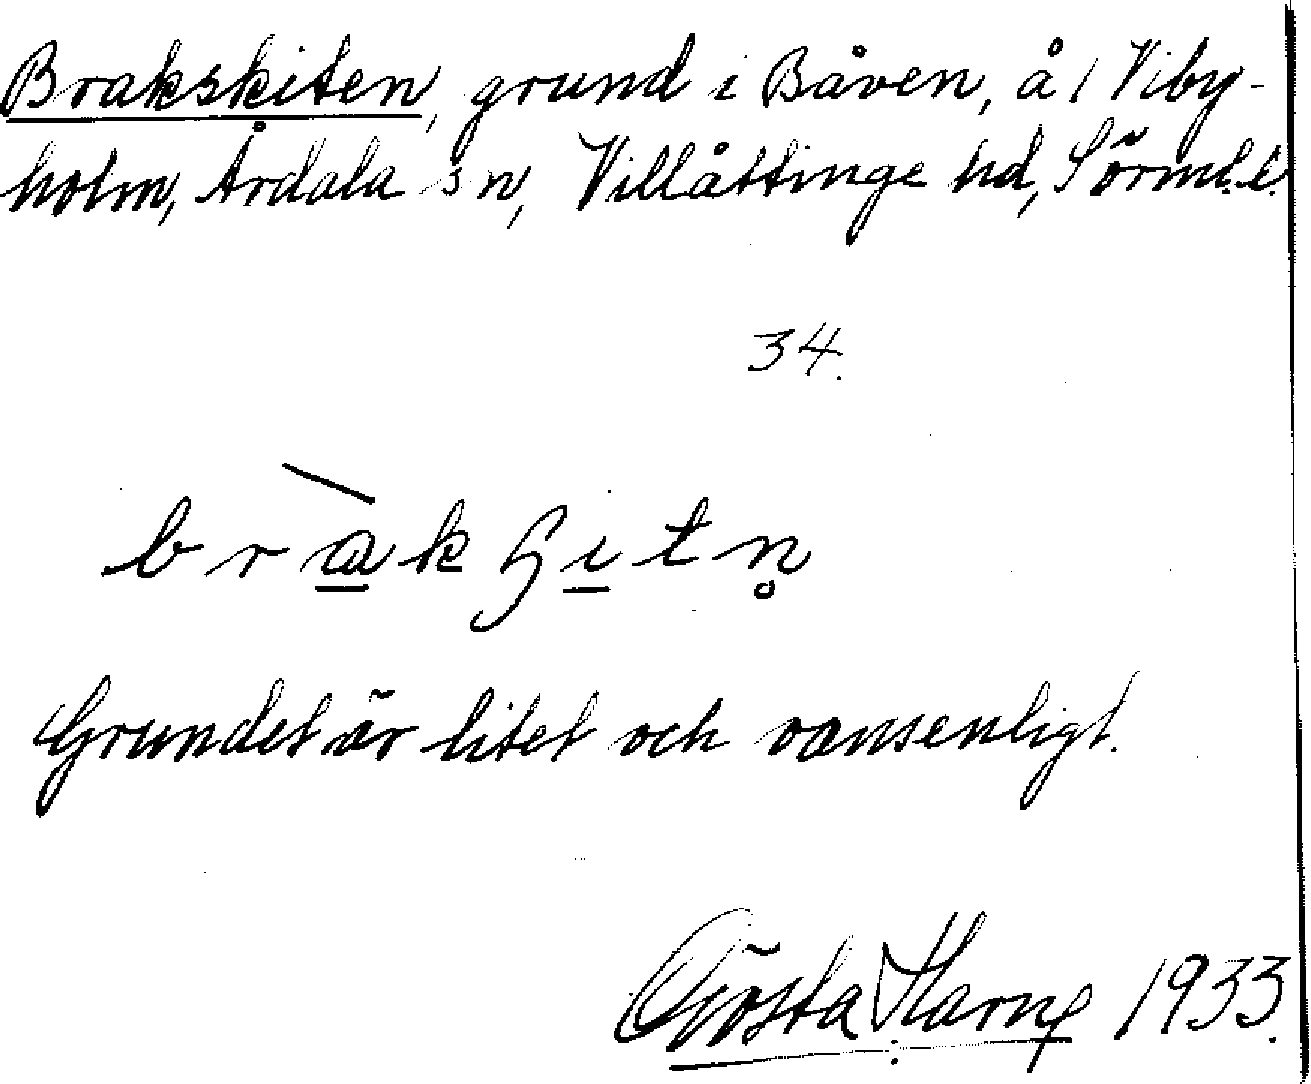 Brakskiten, grund i Båven, å / Viby-
holm, Årdala sn, Villåttinge hd, Sörml.l.
34.
bràkʃitn̥
Grundet är litet och oansenligt.
Gösta Harne 1933.